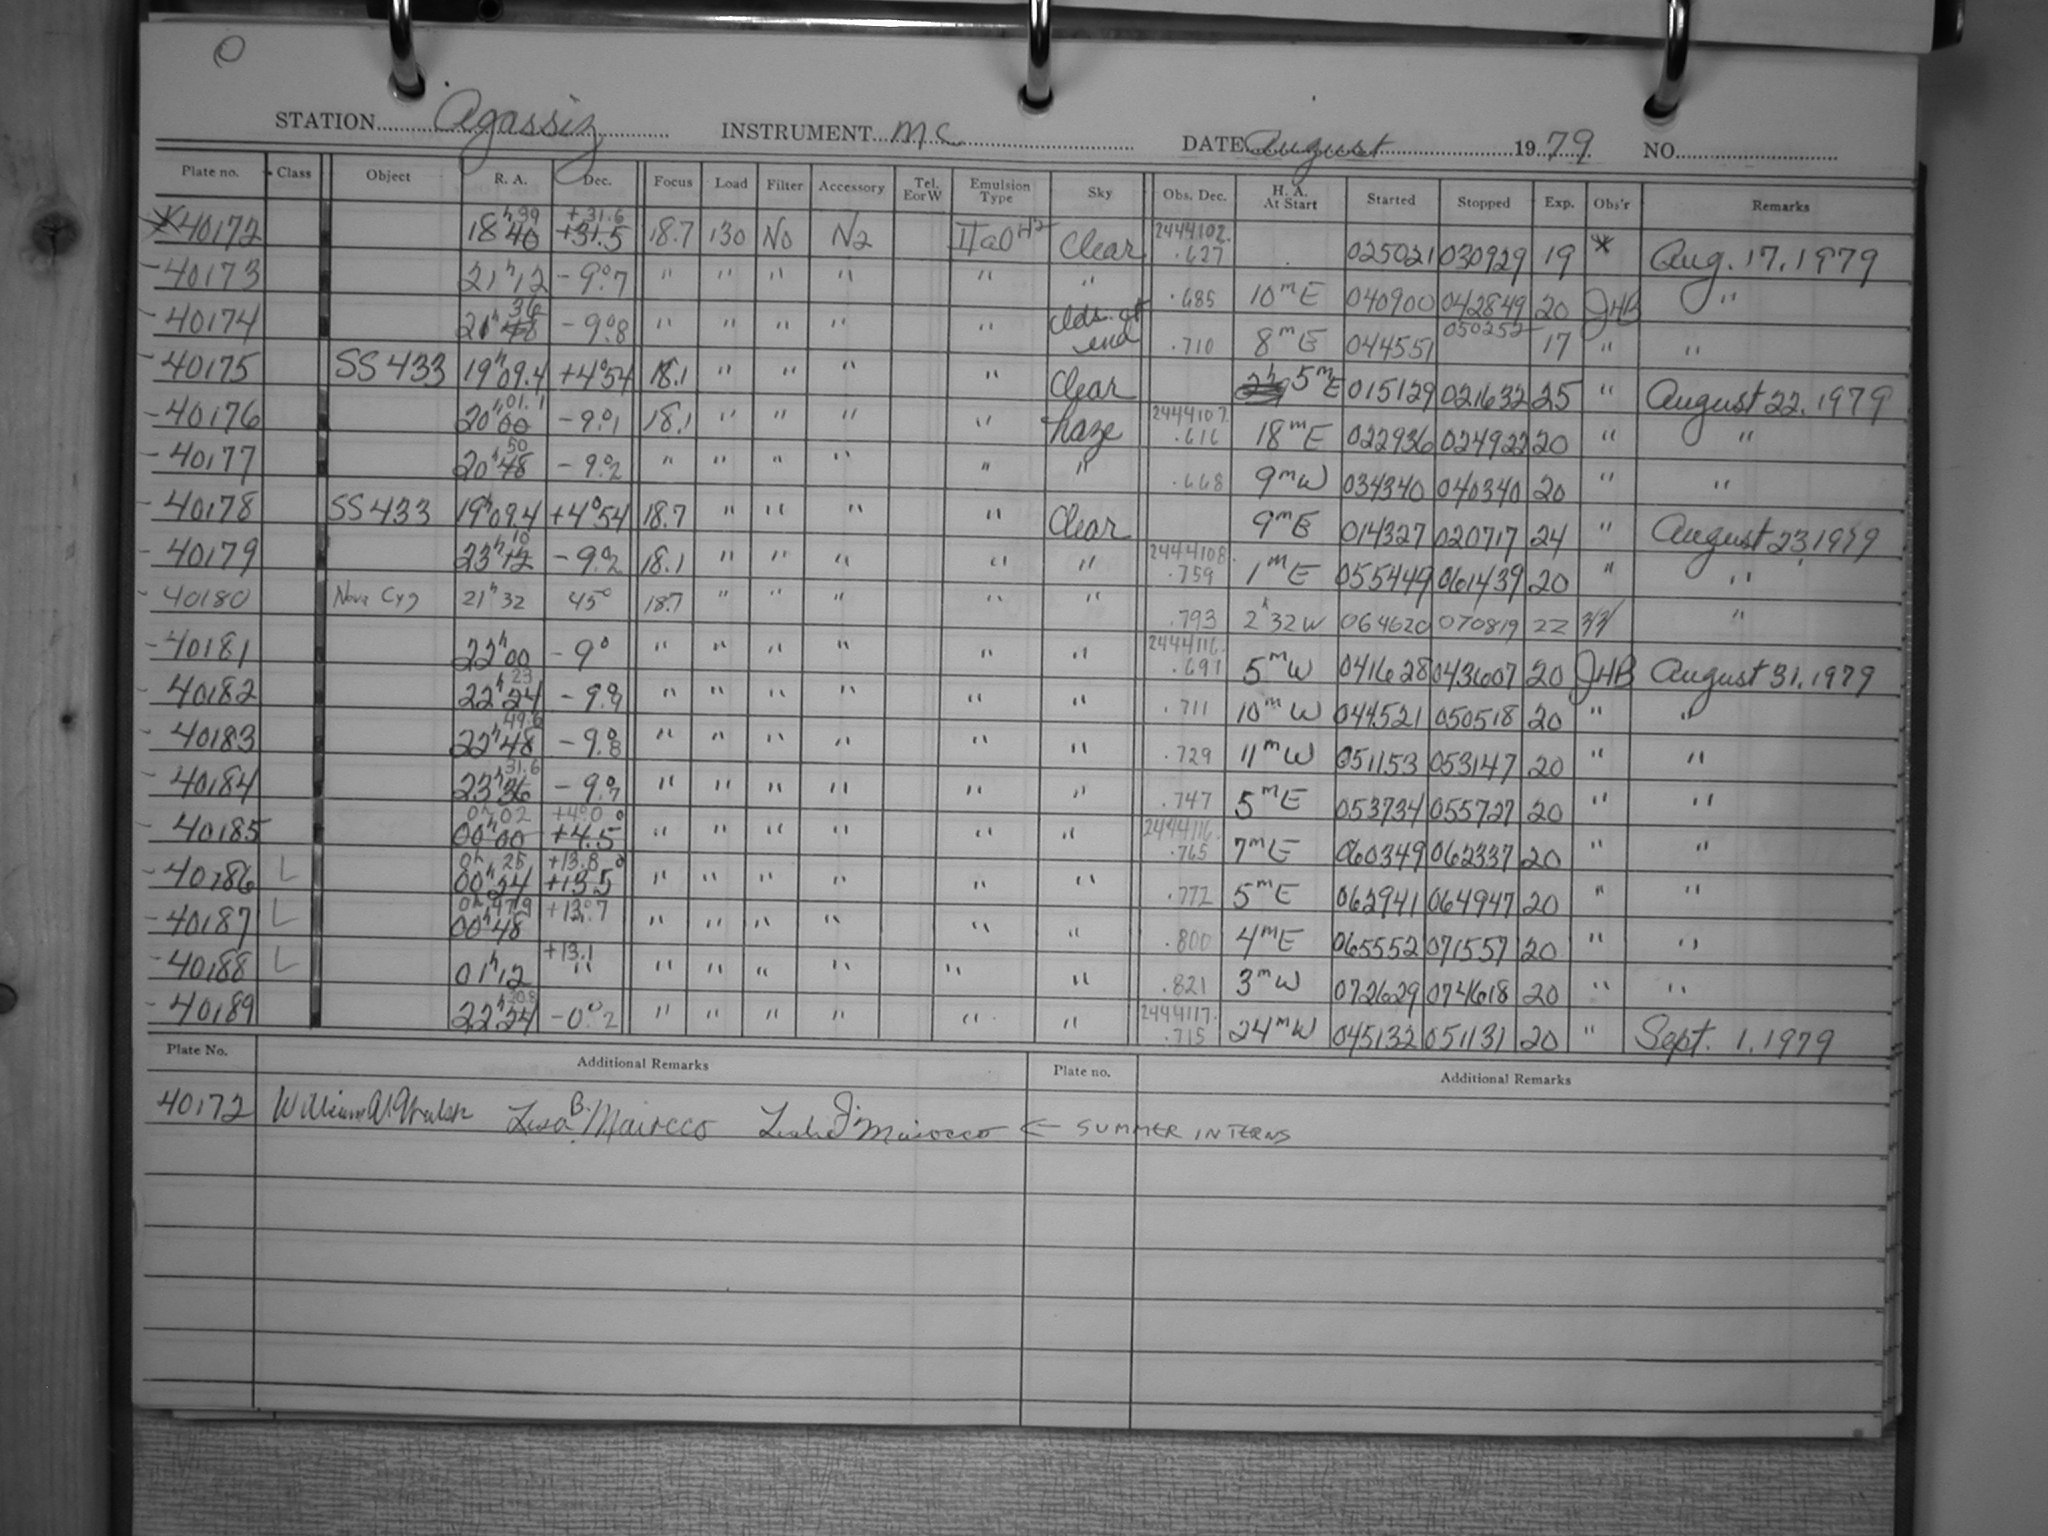 O
STATION Agassiz INSTRUMENT MC DATE August 1979 NO.
Plate no. Class Object R. A. Dec. Focus Load Filter Accessory Tel. E or W Emulsion Type Sky Obs. Dec. H. A. At Start Started Stopped Exp. Obs'r Remarks
* 40172 18h 40 39 +31.5 +31.6 18.7 130 No N2 IIaO Clear 2444102. .627 025021 030929 19 * Aug. 17, 1979
40173 21h12 -9°.7 " " " " " " .685 10mE 040900 042849 20 JHB "
40174 21h 48 36 -9°.8 " " " " " clds. at end .710 8mE 044551 050252 17 " "
40175 SS 433 19h09.4 +4°54 18.1 " " " " Clear 5mE 015129 021632 25 " August 22, 1979
40176 20h00 01.1 -9°.1 18.1 " " " " haze 2444107. .616 18mE 022936 024922 20 " "
40177 20h48 50 -9°.2 " " " " " " .668 9mW 034340 040340 20 " "
40178 SS 433 19h09.4 +4°54 18.7 " " " " Clear 9mE 014327 020717 24 " August 23, 1979
40179 23h12 10 -9°.2 18.1 " " " " " 2444108. .759 1mE 055449 061439 20 " "
40180 Nova Cyg 21h32 45° 18.7 " " " " " .793 2h32W 064620 070819 22 "
40181 22h00 -9° " " " " " " 2444116. .691 5mW 041628 043607 20 JHB August 31, 1979
40182 22h24 23 -9°.9 " " " " " " .711 10mW 044521 050518 20 " "
40183 22h48 49.6 -9°.8 " " " " " " .729 11mW 051153 053147 20 " "
40184 23h36 31.6 -9°.7 " " " " " " .747 5mE 053734 055727 20 " "
40185 00h00 0h02 +4°.5 +4°.0 " " " " " " 2444116. .765 7mE 060349 062337 20 " "
40186 L 00h24 0h 25 +13°.5 +13.8 " " " " " " .772 5mE 062941 064947 20 " "
40187 L 00h48 0h 47.9 +13°.7 " " " " " " .800 4mE 065552 071557 20 " "
40188 L 01h12 +13.1 " " " " " " " .821 3mW 072629 074618 20 " "
40189 22h24 20.8 -0°.2 " " " " " " 2444117. .715 24mW 045132 051131 20 " Sept. 1, 1979
Plate No. Additional Remarks Plate no. Additional Remarks
40172 William Lisa B. Mairocco Leslie J. Mairocco ← SUMMER INTERNS